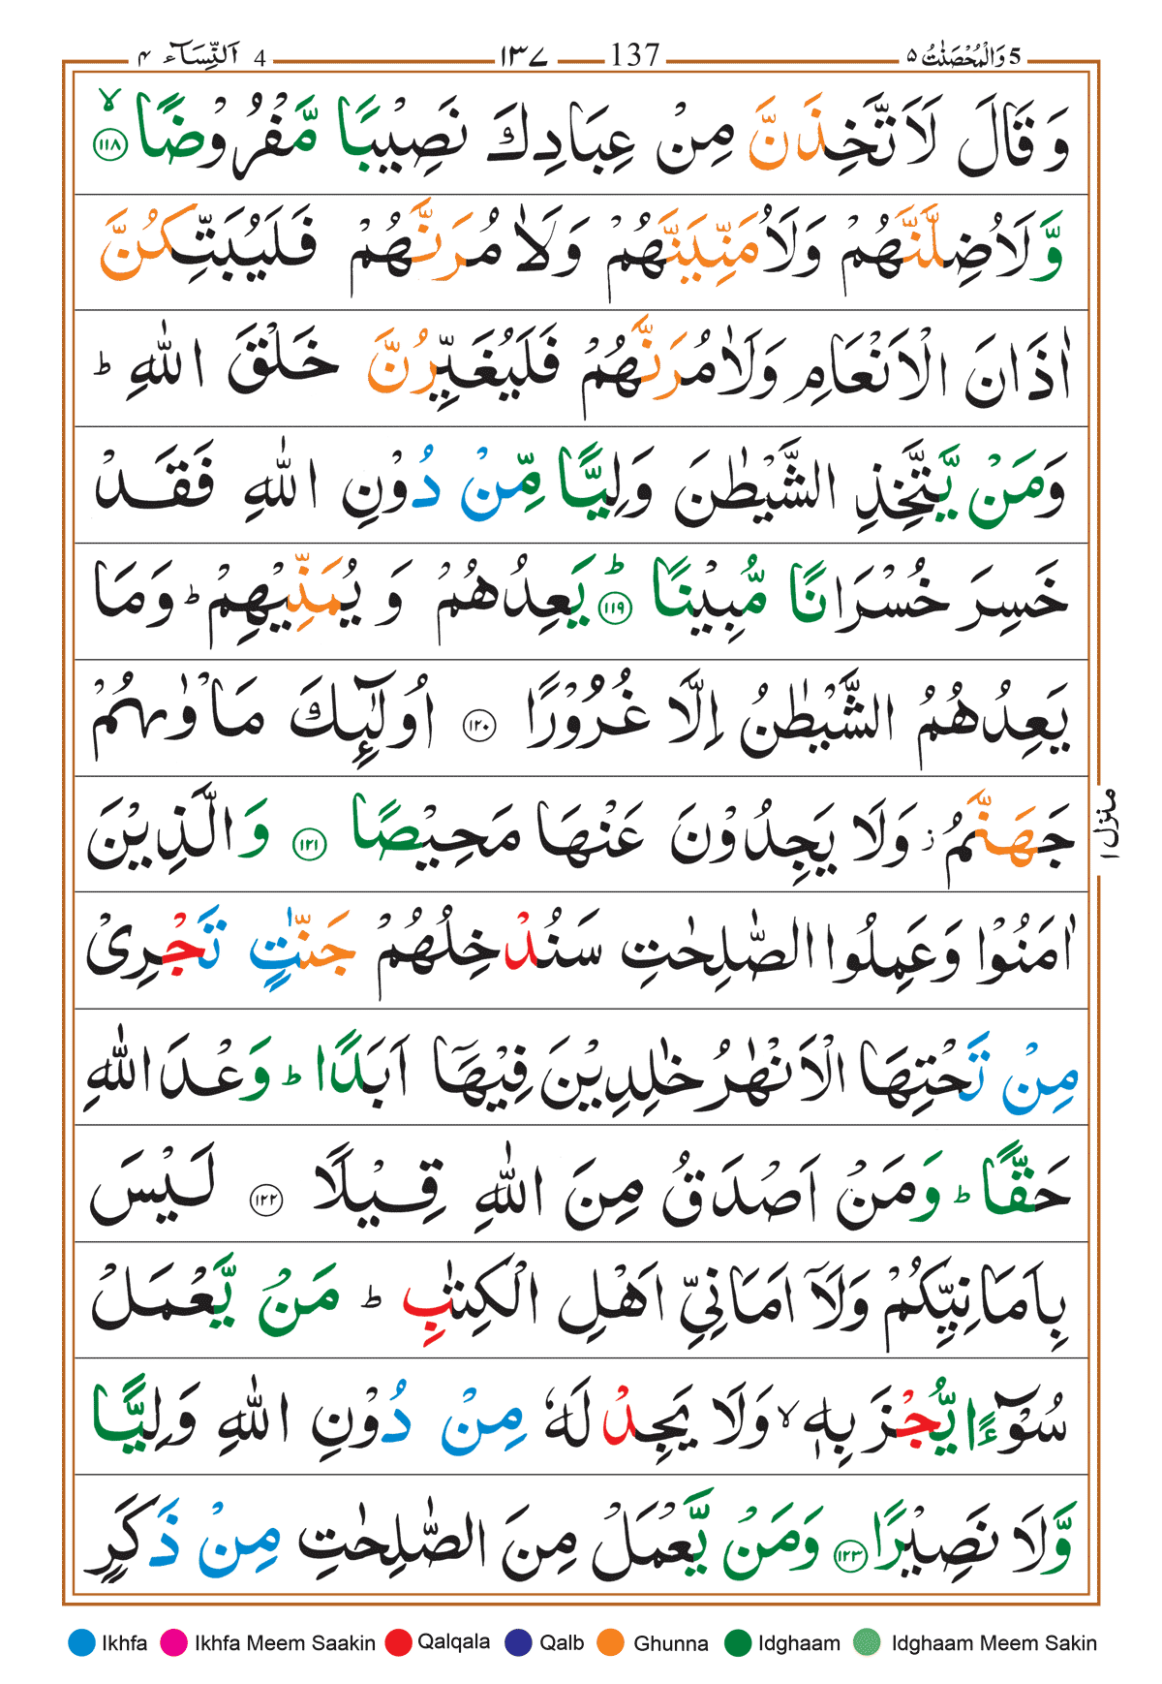 5 وَالْمُحْصَنٰتُ ۵ 137 ١٣٧ 4 اَلنِّسَآء ۴
وَ قَالَ لَاَتَّخِذَنَّ مِنْ عِبَادِكَ نَصِيْبًا مَّفْرُوْضًا ۙ ١١٨
وَّلَاُضِلَّنَّهُمْ وَلَاُمَنِّيَنَّهُمْ وَلَاٰ مُرَنَّهُمْ فَلَيُبَتِّكُنَّ
اٰذَانَ الْاَنْعَامِ وَلَاٰمُرَنَّهُمْ فَلَيُغَيِّرُنَّ خَلْقَ اللّٰهِ ؕ
وَمَنْ يَّتَّخِذِ الشَّيْطٰنَ وَلِيًّا مِّنْ دُوْنِ اللّٰهِ فَقَدْ
خَسِرَ خُسْرَانًا مُّبِيْنًا ؕ ١١٩ يَعِدُهُمْ وَ يُمَنِّيْهِمْ ؕ وَمَا
يَعِدُهُمُ الشَّيْطٰنُ اِلَّا غُرُوْرًا ١٢٠ اُولٰٓئِكَ مَاْوٰىهُمْ
جَهَنَّمُ ز وَلَا يَجِدُوْنَ عَنْهَا مَحِيْصًا ١٢١ وَالَّذِيْنَ
اٰمَنُوْا وَعَمِلُوا الصّٰلِحٰتِ سَنُدْخِلُهُمْ جَنّٰتٍ تَجْرِيْ
مِنْ تَحْتِهَا الْاَنْهٰرُ خٰلِدِيْنَ فِيْهَآ اَبَدًا ؕ وَعْدَ اللّٰهِ
حَقًّا ؕ وَمَنْ اَصْدَقُ مِنَ اللّٰهِ قِيْلًا ١٢٢ لَيْسَ
بِاَمَانِيِّكُمْ وَلَآ اَمَانِيِّ اَهْلِ الْكِتٰبِ ؕ مَنْ يَّعْمَلْ
سُوْٓءًا يُّجْزَ بِهٖ ۙ وَلَا يَجِدْ لَهٗ مِنْ دُوْنِ اللّٰهِ وَلِيًّا
وَّلَا نَصِيْرًا ١٢٣ وَمَنْ يَّعْمَلْ مِنَ الصّٰلِحٰتِ مِنْ ذَكَرٍ
منزل ١
Ikhfa Ikhfa Meem Saakin Qalqala Qalb Ghunna Idghaam Idghaam Meem Sakin